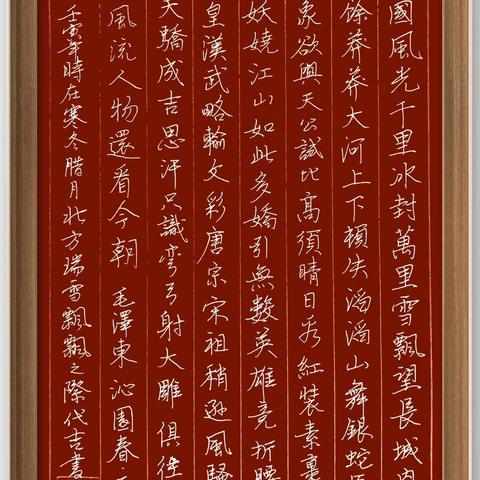 國風光千里冰封萬里雪飄望長城内
餘莽莽大河上下頓失滔滔山舞銀蛇
象欲與天公試比高須晴日看紅裝素裹
妖嬈江山如此多嬌引無數英雄竟折腰
皇漢武略輸文彩唐宗宋祖稍遜風騷
天驕成吉思汗只識彎弓射大雕俱往
風流人物還看今朝 毛澤東沁園春
壬寅年時在寒冬腊月北方瑞雪飄飄之際代吉書